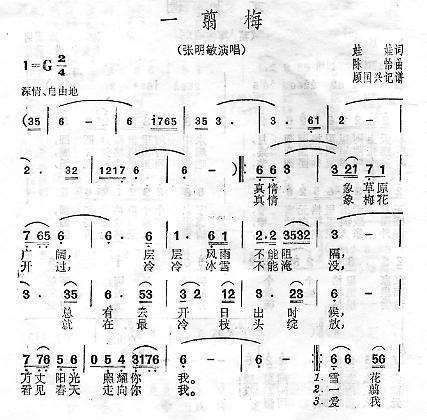 一翦梅
(张明敏演唱)
娃 娃词
1=G 2/4
陈 怡曲
顾国兴记谱
深情、自由地
(35 6 - 6 · 1765 35 · 3 3 · 61
2 · 32 1217 6 · 6 - 6 - ) 6 6 3 3 21 7 1
真情 象草原
真情 象梅花
7 65 6 6 · 6 1 · 6 1 2·2 3532 3 -
广阔， 层层风雨不能阻隔，
开过， 冷冷冰雪不能淹没，
3 · 35 6 · 53 3 2 12 3 · 23 6 -
总 有云开日出时候，
就 在最冷枝头绽放，
7 76 5 6 0 5 4 3176 6 - 6 - 6 6 56
万丈阳光照耀你我。 1.雪 花
看见春天走向你我。 2.一 翦
3.爱 我